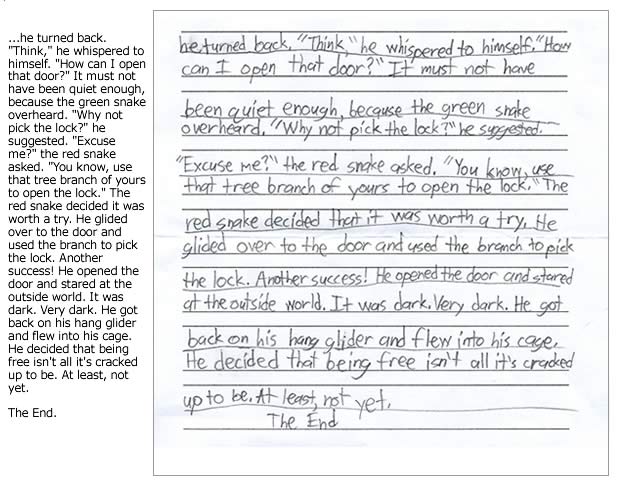 ...he turned back.
"Think," he whispered to
himself. "How can I open
that door?" It must not
have been quiet enough,
because the green snake
overheard. "Why not
pick the lock?" he
suggested. "Excuse
me?" the red snake
asked. "You know, use
that tree branch of yours
to open the lock." The
red snake decided it was
worth a try. He glided
over to the door and
used the branch to pick
the lock. Another
success! He opened the
door and stared at the
outside world. It was
dark. Very dark. He got
back on his hang glider
and flew into his cage.
He decided that being
free isn't all it's cracked
up to be. At least, not
yet.
The End.
he turned back. "Think," he whispered to himself. "How
can I open that door?" It must not have
been quiet enough, because the green snake
overheard. "Why not pick the lock?" he suggested.
"Excuse me?" the red snake asked. "You know, use
that tree branch of yours to open the lock." The
red snake decided that it was worth a try. He
glided over to the door and used the branch to pick
the lock. Another success! He opened the door and stared
at the outside world. It was dark. Very dark. He got
back on his hang glider and flew into his cage.
He decided that being free isn't all it's cracked
up to be. At least, not yet.
The End